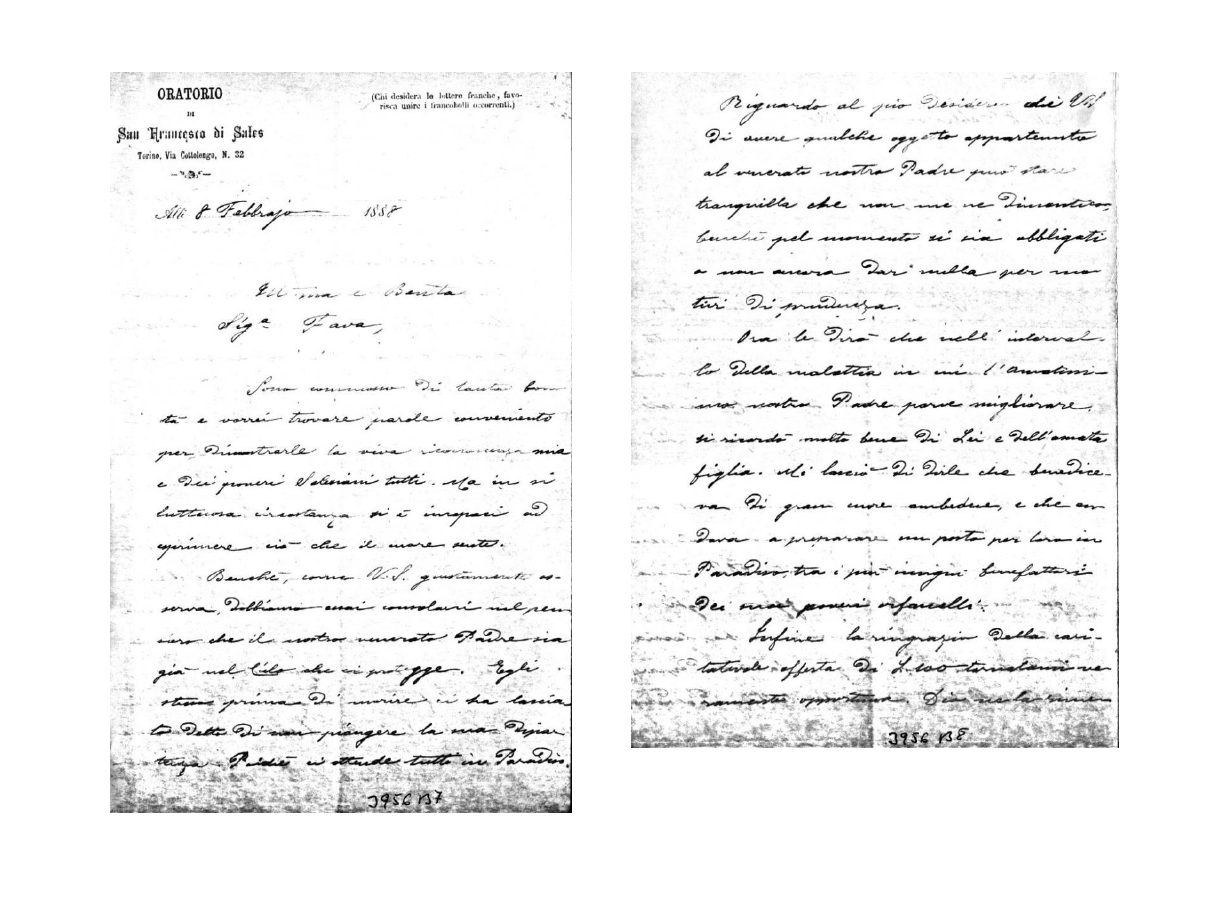 ORATORIO
DI
San Francesco di Sales
Torino, Via Cottolengo, N. 32
(Chi desidera le lettere franche, favo-
risca unire i francobolli occorrenti.)
Alli 8 Febbrajo 1888
Ill ma e Ben.ta
Sig.a Fava,
Sono commosso di tanta bon
tà e vorrei trovare parole conveniento
per dimostrarle la viva riconoscenza mia
e dei poveri Salesiani tutti. Ma in sì
luttuosa circostanza si è incapaci ad
esprimere ciò che il cuore sente.
Benchè, come V. S. giustamente os-
serva, dobbiamo assai consolarci nel pen
siero che il nostro venerato Padre sia
già nel Cielo che ci protegge. Egli
stesso prima di morire ci ha lascia
to detto di non piangere la sua dipar
tenza Perchè ci attende tutti in Paradiso.
J956 B7
Riguardo al pio desiderio che V.S.
di avere qualche oggetto appartenuto
al venerato nostro Padre può stare
tranquilla che non me ne dimentico,
benchè pel momento si sia obbligati
a non ancora dar nulla per mo
tivi di prudenza.
Ora le dirò che nell' interval-
lo della malattia in cui l'amatissi-
mo nostro Padre parve migliorare,
si ricordò molto bene di Lei e dell'amata
figlia. Mi lasciò di dirle che benedice-
va di gran cuore ambedue, e che an
dava a preparare un posto per loro in
Paradiso, tra i più insigni benefattori
dei suoi poveri orfanelli.
Infine la ringrazio della cari-
tatevole offerta di L. 100 tornatami ve
ramente opportuna. Dio
J956 B8